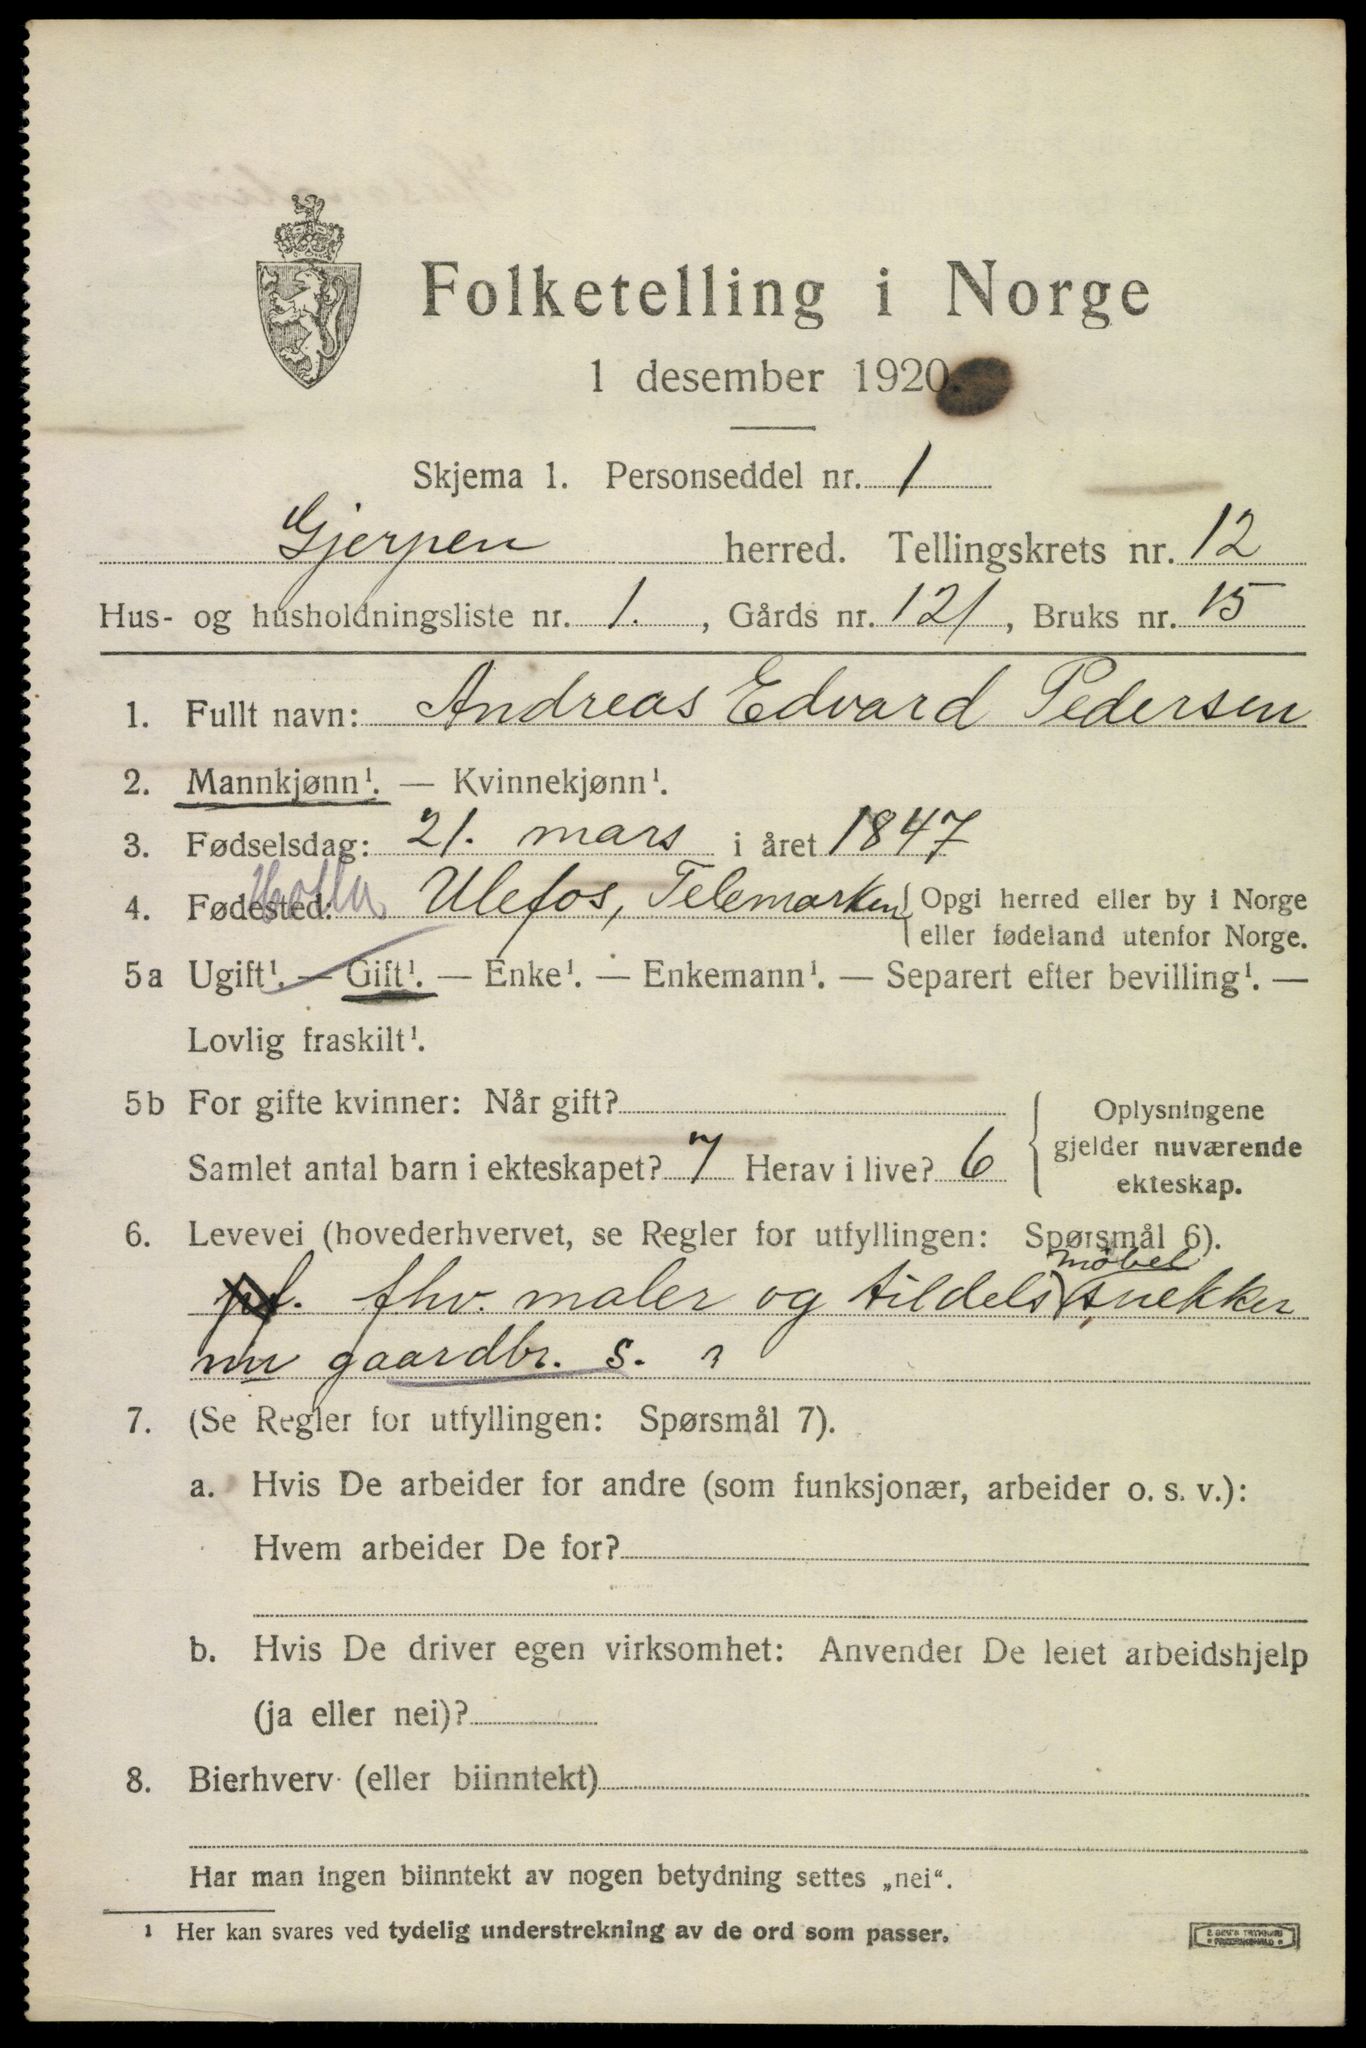 Folketelling i Norge
1 desember 1920.
Skjema 1. Personseddel nr. 1
Gjerpen herred. Tellingskrets nr. 12
Hus- og husholdningsliste nr. 1., Gårds nr. 121, Bruks nr. 15
1. Fullt navn: Andreas Edvard Pedersen
2. Mannkjønn¹. — Kvinnekjønn¹.
3. Fødselsdag: 21. mars i året 1847
Holla
4. Fødested: Ulefos, Telemarken { Opgi herred eller by i Norge
eller fødeland utenfor Norge.
5a Ugift¹. — Gift¹. — Enke¹. — Enkemann¹. — Separert efter bevilling¹. —
Lovlig fraskilt¹.
5b For gifte kvinner: Når gift?
Samlet antal barn i ekteskapet? 7 Herav i live? 6
Oplysningene
gjelder nuværende
ekteskap.
6. Levevei (hovederhvervet, se Regler for utfyllingen: Spørsmål 6).
møbel
fhv. maler og tildels snekker
nu gaardbr. s.
7. (Se Regler for utfyllingen: Spørsmål 7).
a. Hvis De arbeider for andre (som funksjonær, arbeider o. s. v.):
Hvem arbeider De for?
b. Hvis De driver egen virksomhet: Anvender De leiet arbeidshjelp
(ja eller nei)?
8. Bierhverv (eller biinntekt)
Har man ingen biinntekt av nogen betydning settes „nei“.
¹ Her kan svares ved tydelig understrekning av de ord som passer.